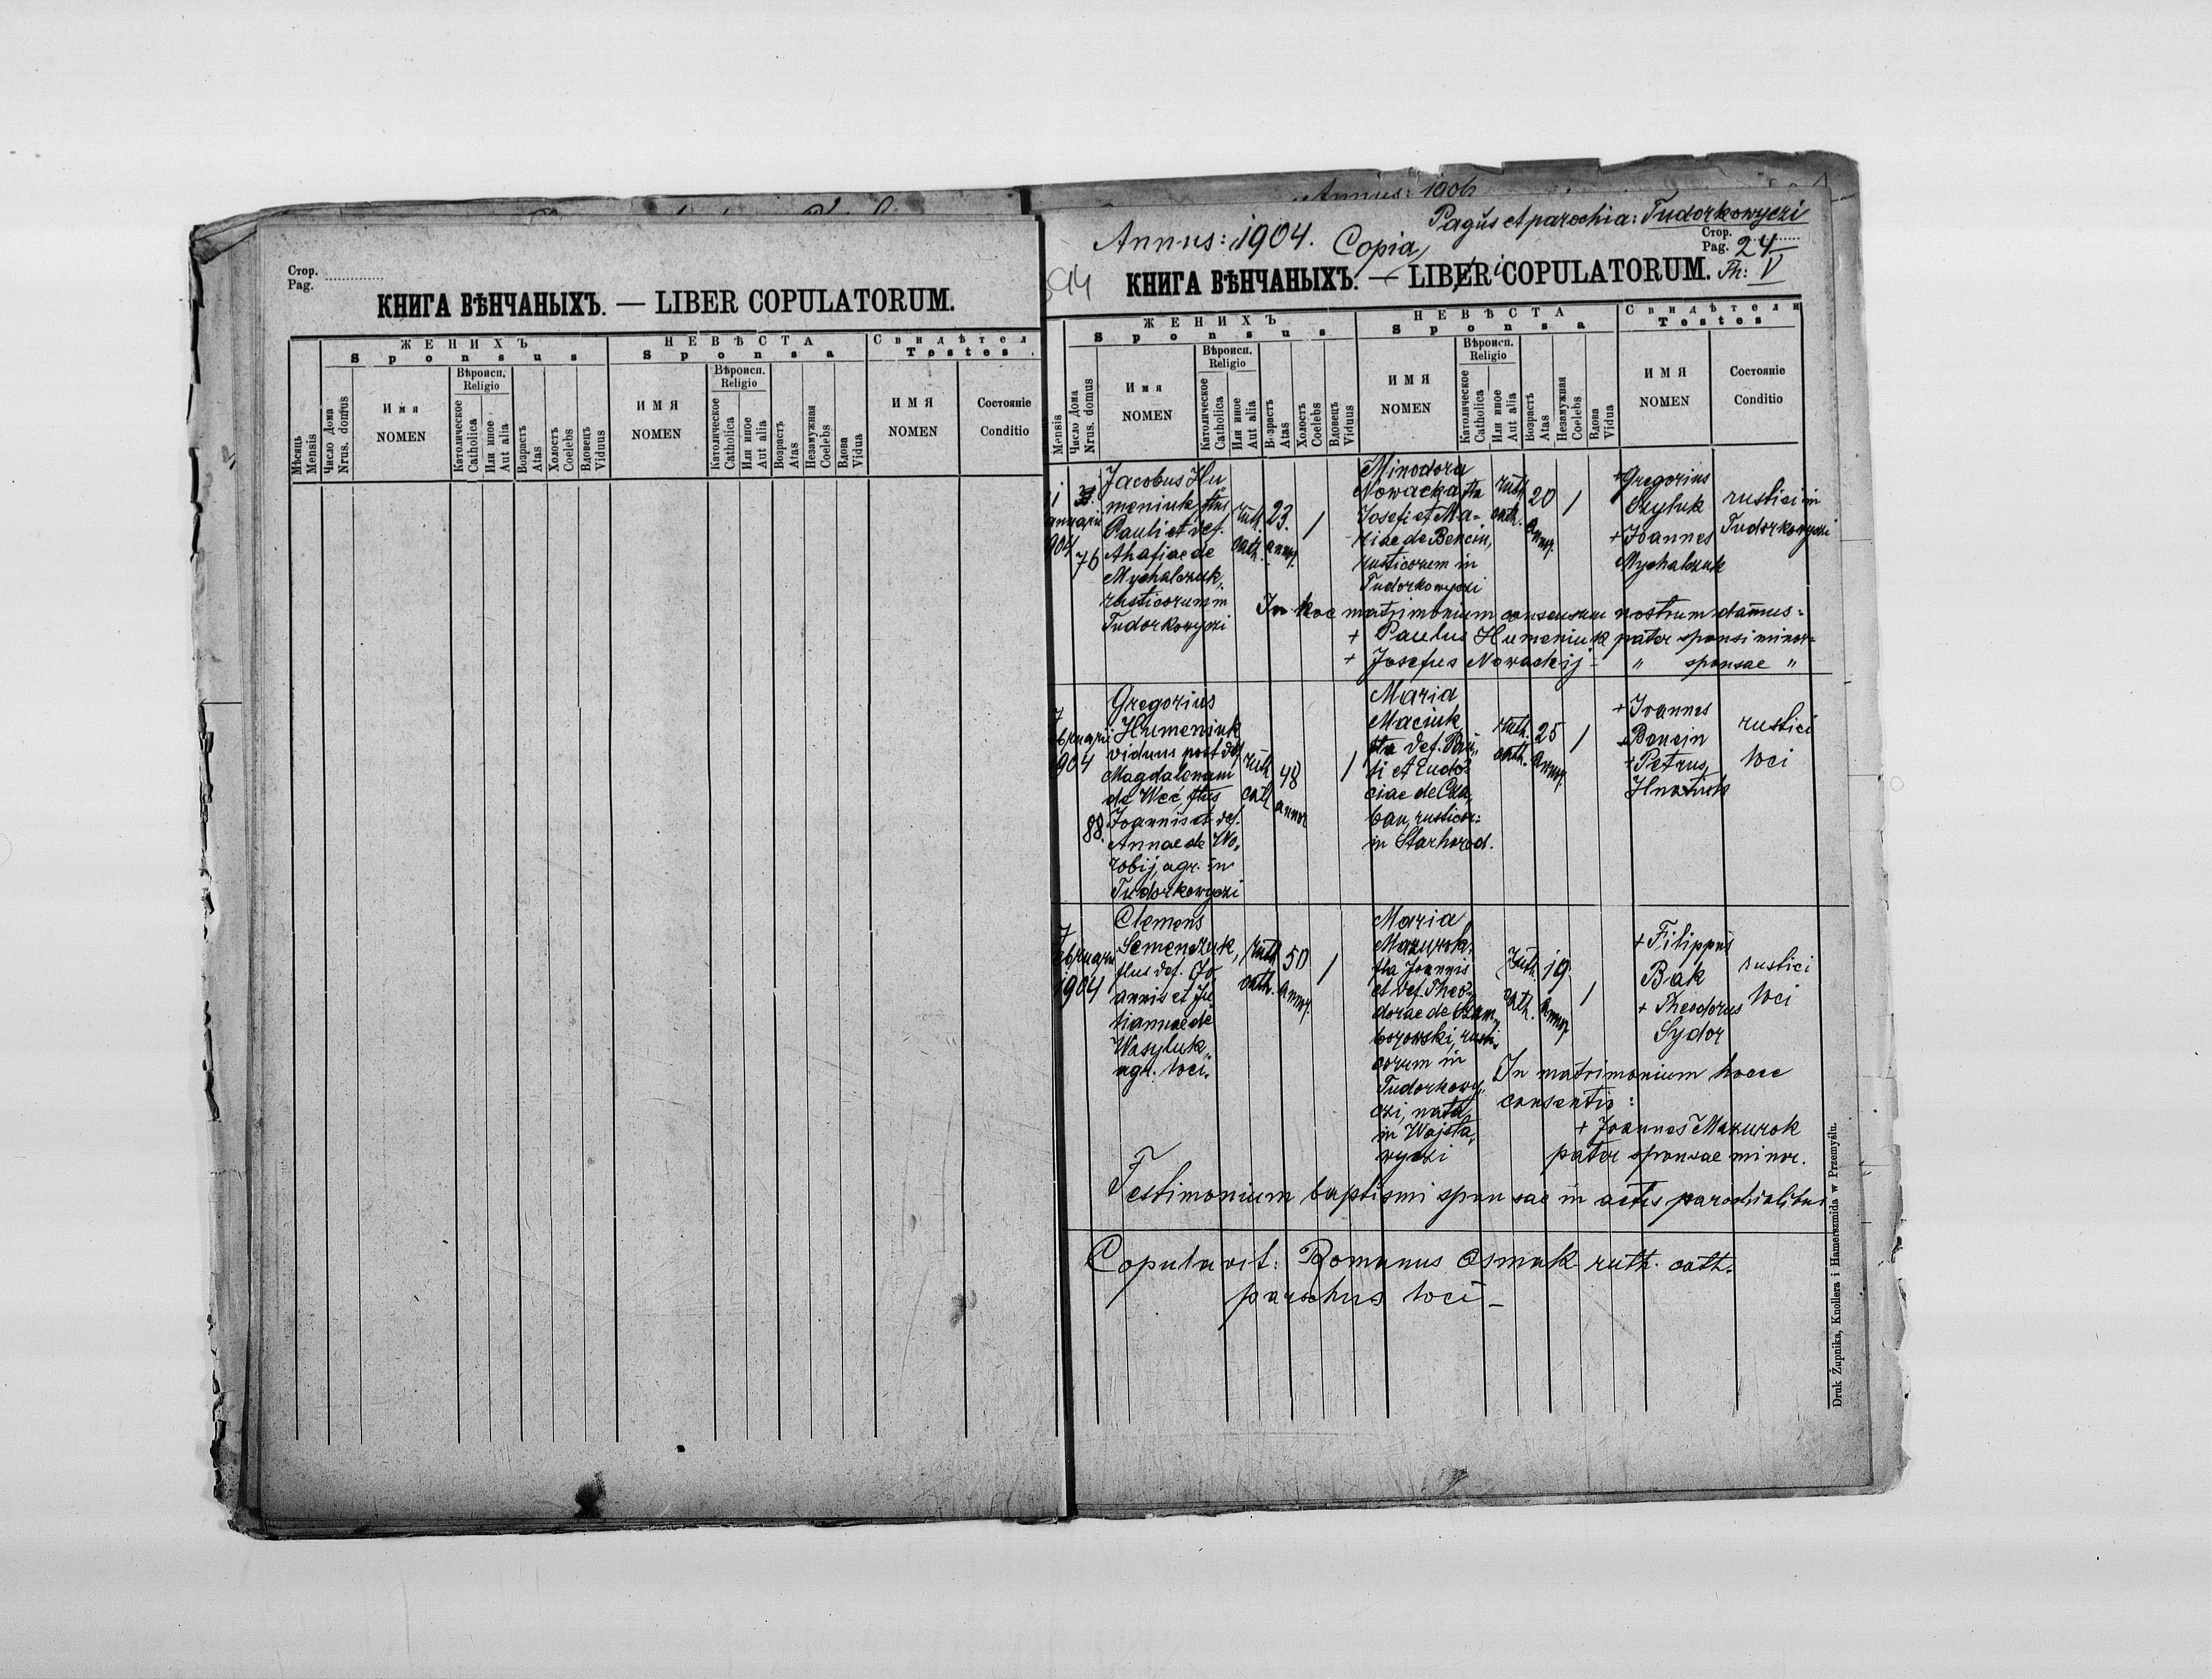 Стор.
Pag.
КНИГА ВѢНЧАНЫХЪ. — LIBER COPULATORUM.
Мѣсяць
Mensis
Число Дома
Nrus. domus
ЖЕНИХЪ
Sponsus
Имя
NOMEN
Вѣроисп.
Religio
Католическое
Catholica
Или иное
Aut alia
Возрастъ
Atas
Холостъ
Coelebs
Вдовецъ
Viduus
НЕВѢСТА
Sponsa
ИМЯ
NOMEN
Вѣроисп.
Religio
Католическое
Catholica
Или иное
Aut alia
Возрастъ
Atas
Незамужная
Coelebs
Вдова
Vidua
Свидѣтел
Testes
ИМЯ
NOMEN
Состояніе
Conditio
Annus:
Annus: 1904. Copia
Pagus et parochia: Tudorkowyczi
Стор.
Pag. 24
Th: V
КНИГА ВѢНЧАНЫХЪ. — LIBERI COPULATORUM.
Mensis
Число Дома
Nrus. domus
ЖЕНИХЪ
Sponsus
Имя
NOMEN
Вѣроисп.
Religio
Католическое
Catholica
Или иное
Aut alia
Возрастъ
Atas
Холостъ
Coelebs
Вдовецъ
Viduus
НЕВѢСТА
Sponsa
ИМЯ
NOMEN
Вѣроисп.
Religio
Католическое
Catholica
Или иное
Aut alia
Возрастъ
Atas
Незамужная
Coelebs
Вдова
Vidua
Свидѣтели
Testes
ИМЯ
NOMEN
Состояніе
Conditio
anuarii
904
76
Jacobus Hu„
meniuk, flius
Pauli et def.
Ahafiae de
Mychalczuk,
rusticorum in
Tudorkowyczi
ruth.
cath.
23.
annor.
/
Minodora
Nowacka, flia
Josefi et Ma-
riae de Bencin,
rusticorum in
Tudorkowyczi
ruth.
cath.
20
annor.
/
+ Gregorius
Szyluk
+ Joannes
Mychalczuk
rustici in
Tudorkowyczi
In hoc matrimonium consensum nostrum damus:
+ Paulus Humeniuk pater sponsi minor=
+ Josefus Nowackij - „ sponsae „
7
ebruarii
1904
88.
Gregorius
Humeniuk
viduus post def.
Magdalenam
de Weć, flius
Joannis et def.
Annae de Wo„
robij, agr. in
Tudorkowyczi
ruth.
cath
48
annor
/
Maria
Maciuk
flia def. Pau„
li et Eudo-
ciae de
ban, rusticor:
in Starhorod.
ruth.
cath.
25
annor.
/
+ Joannes
+ Bencin
+ Petrus
Hnatiuk
rustici
loci
7
ebruarii
1904
Clemens
Semenczuk,
flius def. Jo
annis et Ju
liannae de
Wasyluk,
agr. loci.
ruth
cath.
50
annor.
/
Maria
Mazurok,
flia Joannis
et def. Theo-
dorae de Szam„
borowski, rusti„
corum in
Tudorkowy„
czi, nata
in Wojsła„
wyczi
ruth.
cath.
19
annor.
/
+ Filippus
Bak
+ Theodorus
Sydor
rustici
loci
In matrimonium hocce
consentio:
+ Joannes Mazurok
pater sponsae minor.
Testimonium baptismi sponsae in actis parochialibus
Copulavit: Romanus Osmak ruth. cath.
parochus loci -
Druk Żupnika, Knollera i Hamerszmida w Przemyślu.